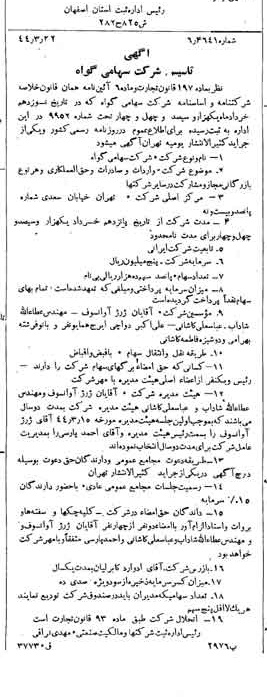 رئیس اداره ثبت استان اصفهان
ش ۸۲۵ح ۲۸۲
شماره ۶۱۴۶۴ر۶ ۲۲ر۳ر۴۴
آگهی
تاسیس شرکت سهامی گواه
نظر بماده ۱۹۷ قانون تجارت وماده ۶ آئین‌نامه همان قانون خلاصه
شرکتنامه و اساسنامه شرکت سهامی گواه که در تاریخ نوزدهم
خردادماه یکهزار و سیصد و چهل و چهار تحت شماره ۹۹۵۲ در این
اداره به ثبت رسیده برای اطلاع عموم در روزنامه رسمی کشور و یکی از
جراید کثیرالانتشار یومیه تهران آگهی میشود
۱ـ نام ونوع شرکت ـ شرکت سهامی گواه
۲ـ موضوع شرکت ـ واردات و صادرات وحق‌العملکاری وهر نوع
بازرگانی مجاز ومشارکت در سایر شرکتها
۳ـ مرکز اصلی شرکت ـ تهران خیابان سعدی شماره
پانصد و بیست و نه
۴ـ مدت شرکت از تاریخ پانزدهم خرداد یکهزار و سیصدو
چهل وچهار برای مدت نامحدود
۵ـ تابعیت شرکت ایرانی
۶ـ سرمایه شرکت ـ پنج میلیون ریال
۷ـ تعداد سهام ـ پانصد سهم ده هزار ریالی بی نام
۸ـ میزان سرمایه پرداختی ومبلغی که تعهد شده است ـ تمام بهای
سهام نقداً پرداخت گردیده است
۹ـ مؤسسین شرکت ـ آقایان ژرژ آوانسوف ـ مهندس عطاءالله
شاداب ـ عباسعلی کاشانی ـ علی اکبر دواچی ایرج همایونفر و بانو فرشته
بهرامی و دوشیزه فاطمه کاشانی
۱۰ـ طریقه نقل وانتقال سهام ـ باقبض واقباض
۱۱ـ کسانی که حق امضاء برگهای سهام شرکت را دارند ـ
رئیس ویکنفر از اعضاء اصلی هیئت مدیره با مهر شرکت
۱۲ـ هیئت مدیره شرکت ـ آقایان ژرژ آوانسوف ومهندس
عطاءالله شاداب و عباسعلی کاشانی هیئت مدیره شرکت بمدت دوسال
میباشند که بموجب اولین جلسه هیئت مدیره مورخه ۱۵ر۳ر۴۴ آقای ژرژ
آوانسوف را بسمت رئیس هیئت مدیره و آقای احمد پارسی را بمدیریت
عامل شرکت برای مدت دوسال انتخاب نموده‌اند
۱۳ـ طریقه دعوت مجامع عمومی ودارندگان حق دعوت بوسیله
درج آگهی در یکی از جراید کثیرالانتشار تهران
۱۴ـ رسمیت جلسات مجامع عمومی عادی ـ با حضور دارندگان
سرمایه
۱۵ـ دارندگان حق امضاء در شرکت ـ کلیه چکها و سفته‌ها و
بروات واسناد الزام آور با امضاء دونفر از چهار نفر آقایان ژرژ آوانسوف و
مهندس عطاءالله شاداب و عباسعلی کاشانی واحمد پارسی متفقاً با مهر شرکت
خواهد بود
۱۶ـ بازرس شرکت ـ آقای ادوارد کابرلیان بمدت یکسال
۱۷ـ میزان کسر سرمایه ذخیره از سود ویژه صدی ده
۱۸ـ تعداد سهامیکه مدیران باید در صندوق شرکت تودیع نمایند
هریک لااقل پنج سهم
۱۹ـ انحلال شرکت طبق ماده ۹۳ قانون تجارت است
رئیس اداره ثبت شرکتها ومالکیت صنعتی ـ مهدی نراقی
پ ۲۹۷۶ ق ۳۷۷۳۰